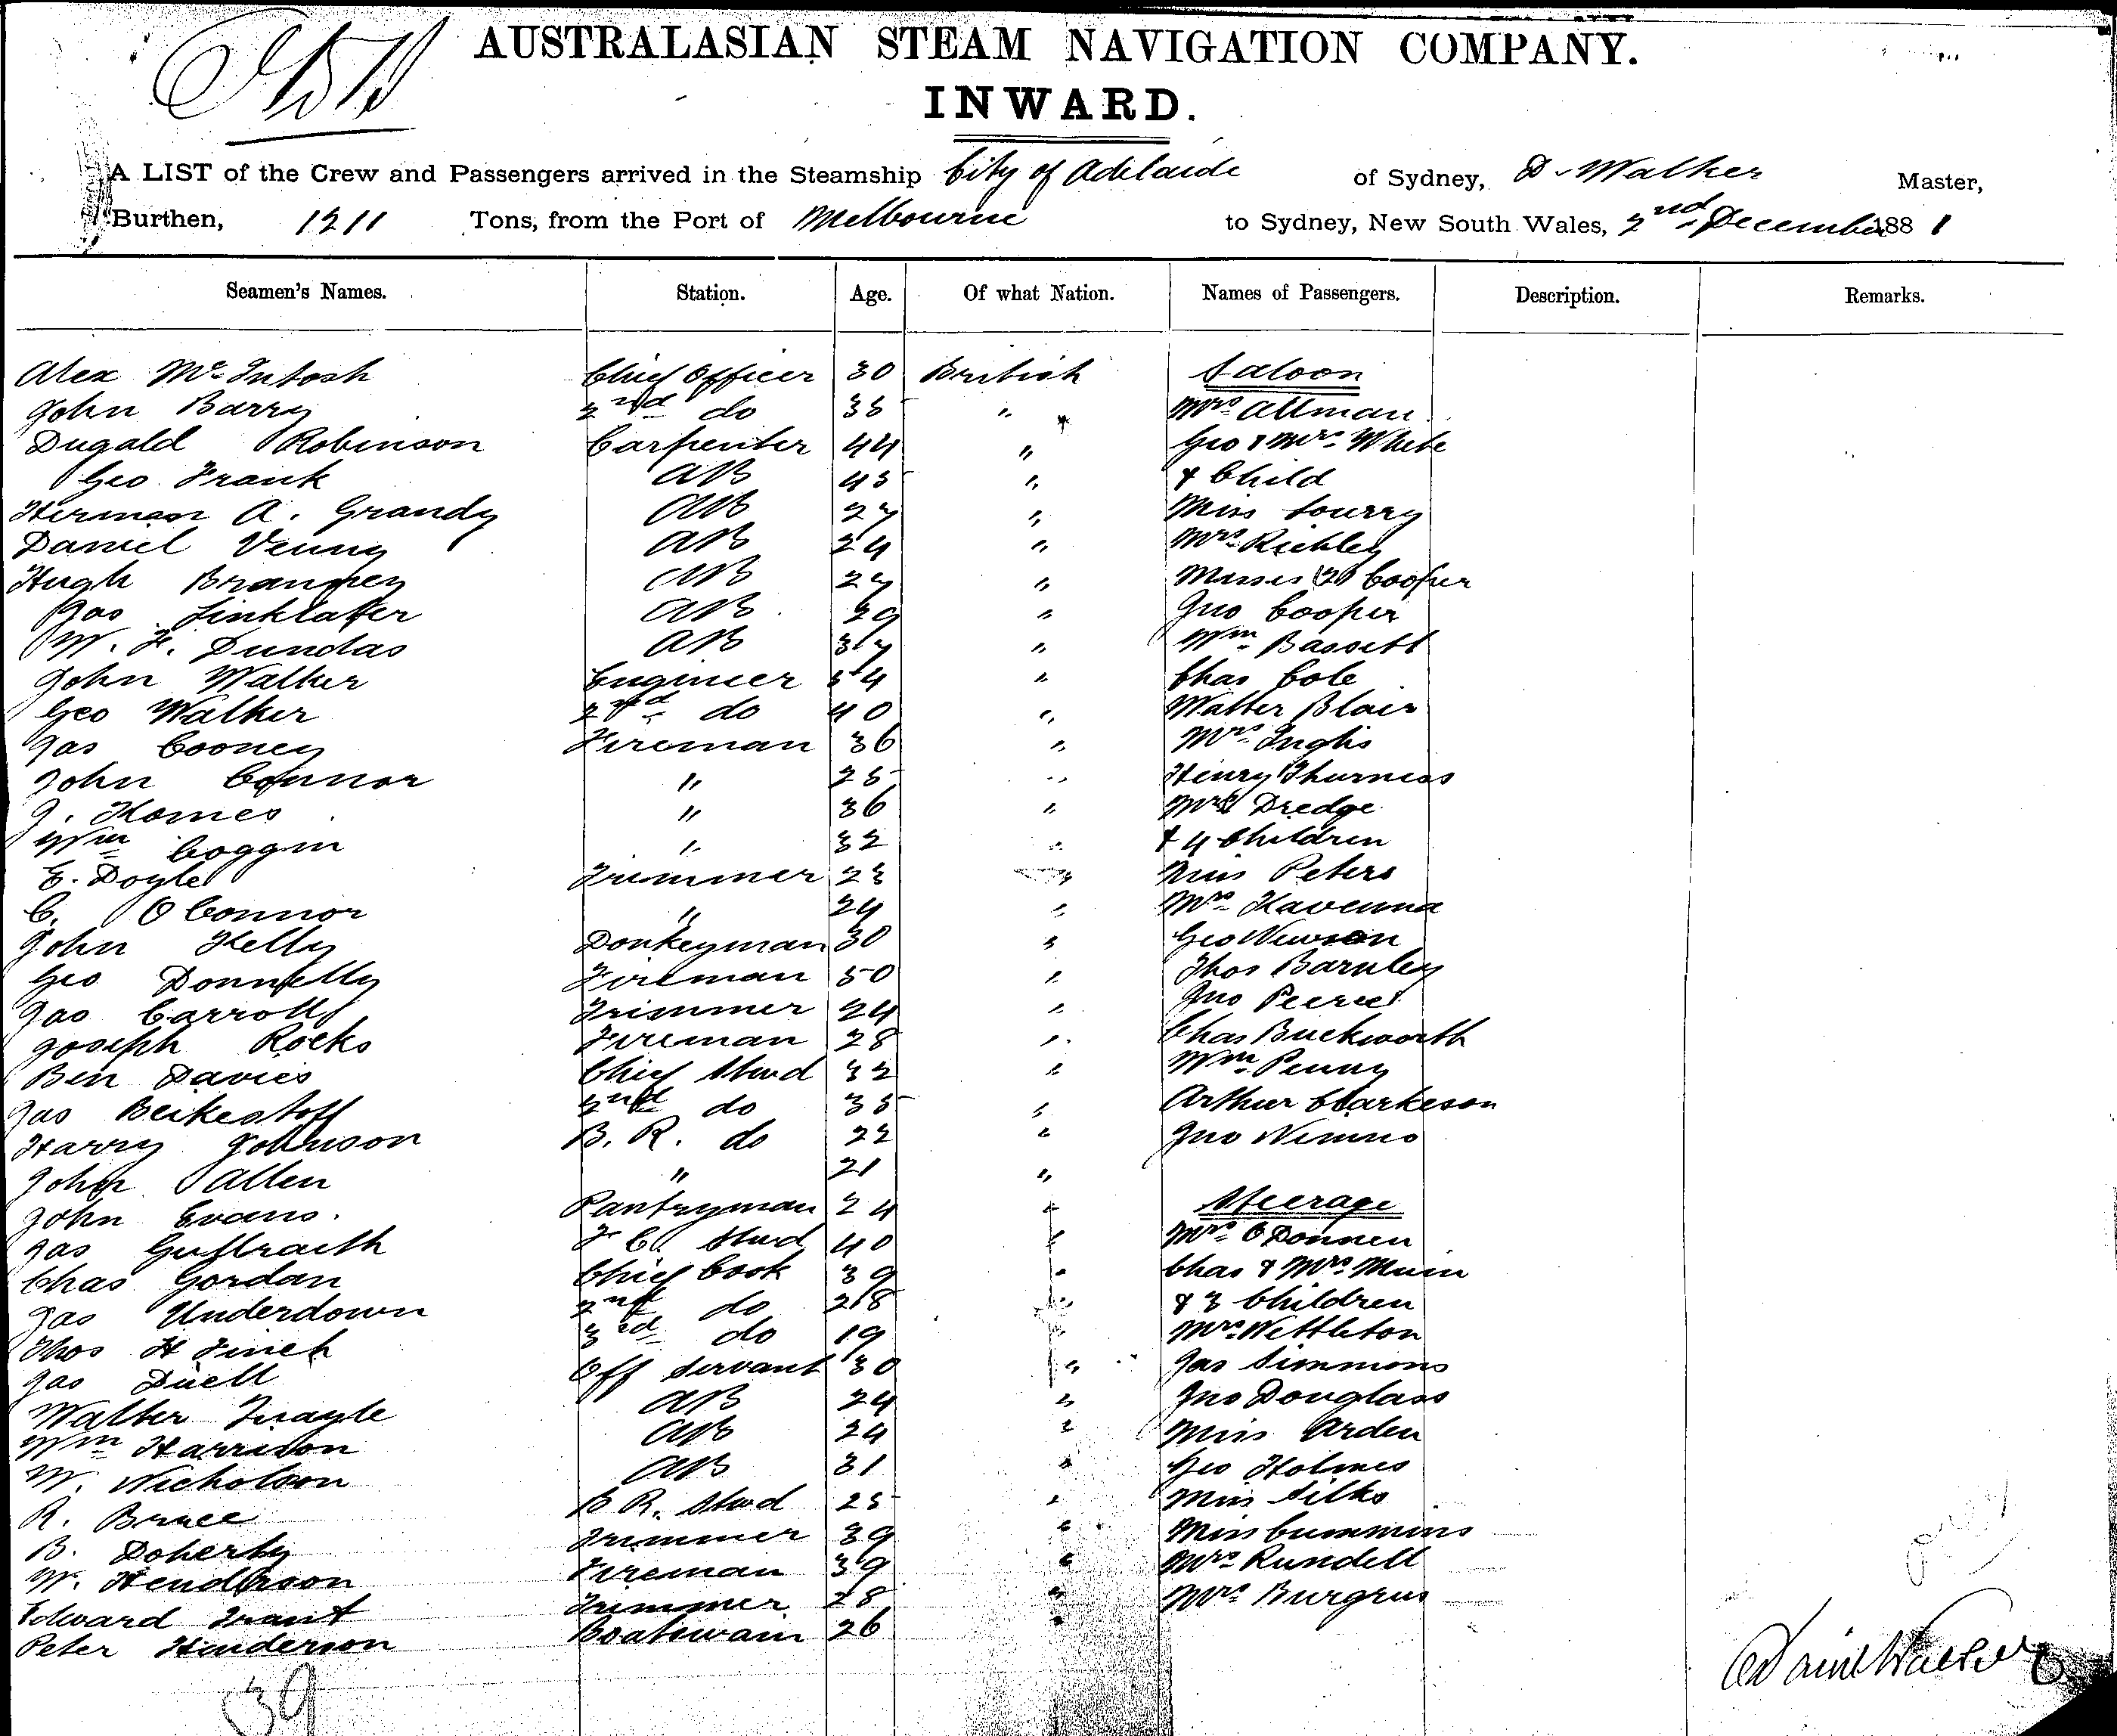 AUSTRALASIAN STEAM NAVIGATION COMPANY.
INWARD.
A LIST of the Crew and Passengers arrived in the Steamship City of Adelaide of Sydney, D. Walker Master,
Burthen, 1211 Tons, from the Port of Melbourne to Sydney, New South Wales, 2nd December 1881
Seamen's Names. Station. Age. Of what Nation. Names of Passengers. Description. Remarks.
Alex McIntosh Chief Officer 30 British Saloon
John Barry 2nd do 35 " Mrs Altman
Dugald Robinson Carpenter 44 " Geo & Mrs White
Geo Frank AB 45 " & Child
Herman A. Grandy AB 27 " Miss Lourry
Daniel Venny AB 24 " Mrs Richley
Hugh AB 27 " Misses (2) Cooper
Jas Linklatter AB 29 " Jno Cooper
W. F. Dundas AB 37 " Wm Bassett
John Walker Engineer 54 " Chas Cole
Geo Walker 2nd do 40 " Walter Blair
Jas Cooney Fireman 36 " Mrs Inglis
John Connor " 25 " Henry Thurness
J. Homes " 36 " Mrs Dredge
Wm Coggin " 32 " & 4 Children
E. Doyle Trimmer 23 " Miss Peters
C. O Connor " 24 " Mrs Kavenna
John Kelly Donkeyman 30 " Geo Newson
Geo Donnelly Fireman 50 " Thos Barnley
Jas Carroll Trimmer 24 " Jno
Joseph Rocks Fireman 28 " Chas Buckworth
Ben Davies Chief Stwd 32 " Wm Penny
Jas 2nd do 35 " Arthur Clarkeson
Harry Johnson B. R. do 22 " Jno Nimmo
John Allen " 21 "
John Evans. Pantryman 24 " Steerage
Jas F C Stwd 40 " Mrs O Donnen
Chas Gordan Chief Cook 39 " Chas & Mrs
Jas Underdown 2nd do 28 " & 3 Children
Thos H Finch 3rd do 19 " Mrs Nettleton
Jas Duell Off Servant 30 " Jas Simmons
Walter Quayle AB 24 " Jno Douglass
Wm Harrison AB 24 " Miss Arden
W. Nicholson AB 31 " Geo Holmes
R. Bruce B R. Stwd 25 " Miss Silks
B. Doherty Trimmer 39 " Miss Cummins
W. Henderson Fireman 39 " Mrs Rundell
Edward Grant Trimmer 28 " Mrs
Peter Henderson Boatswain 26 "
39